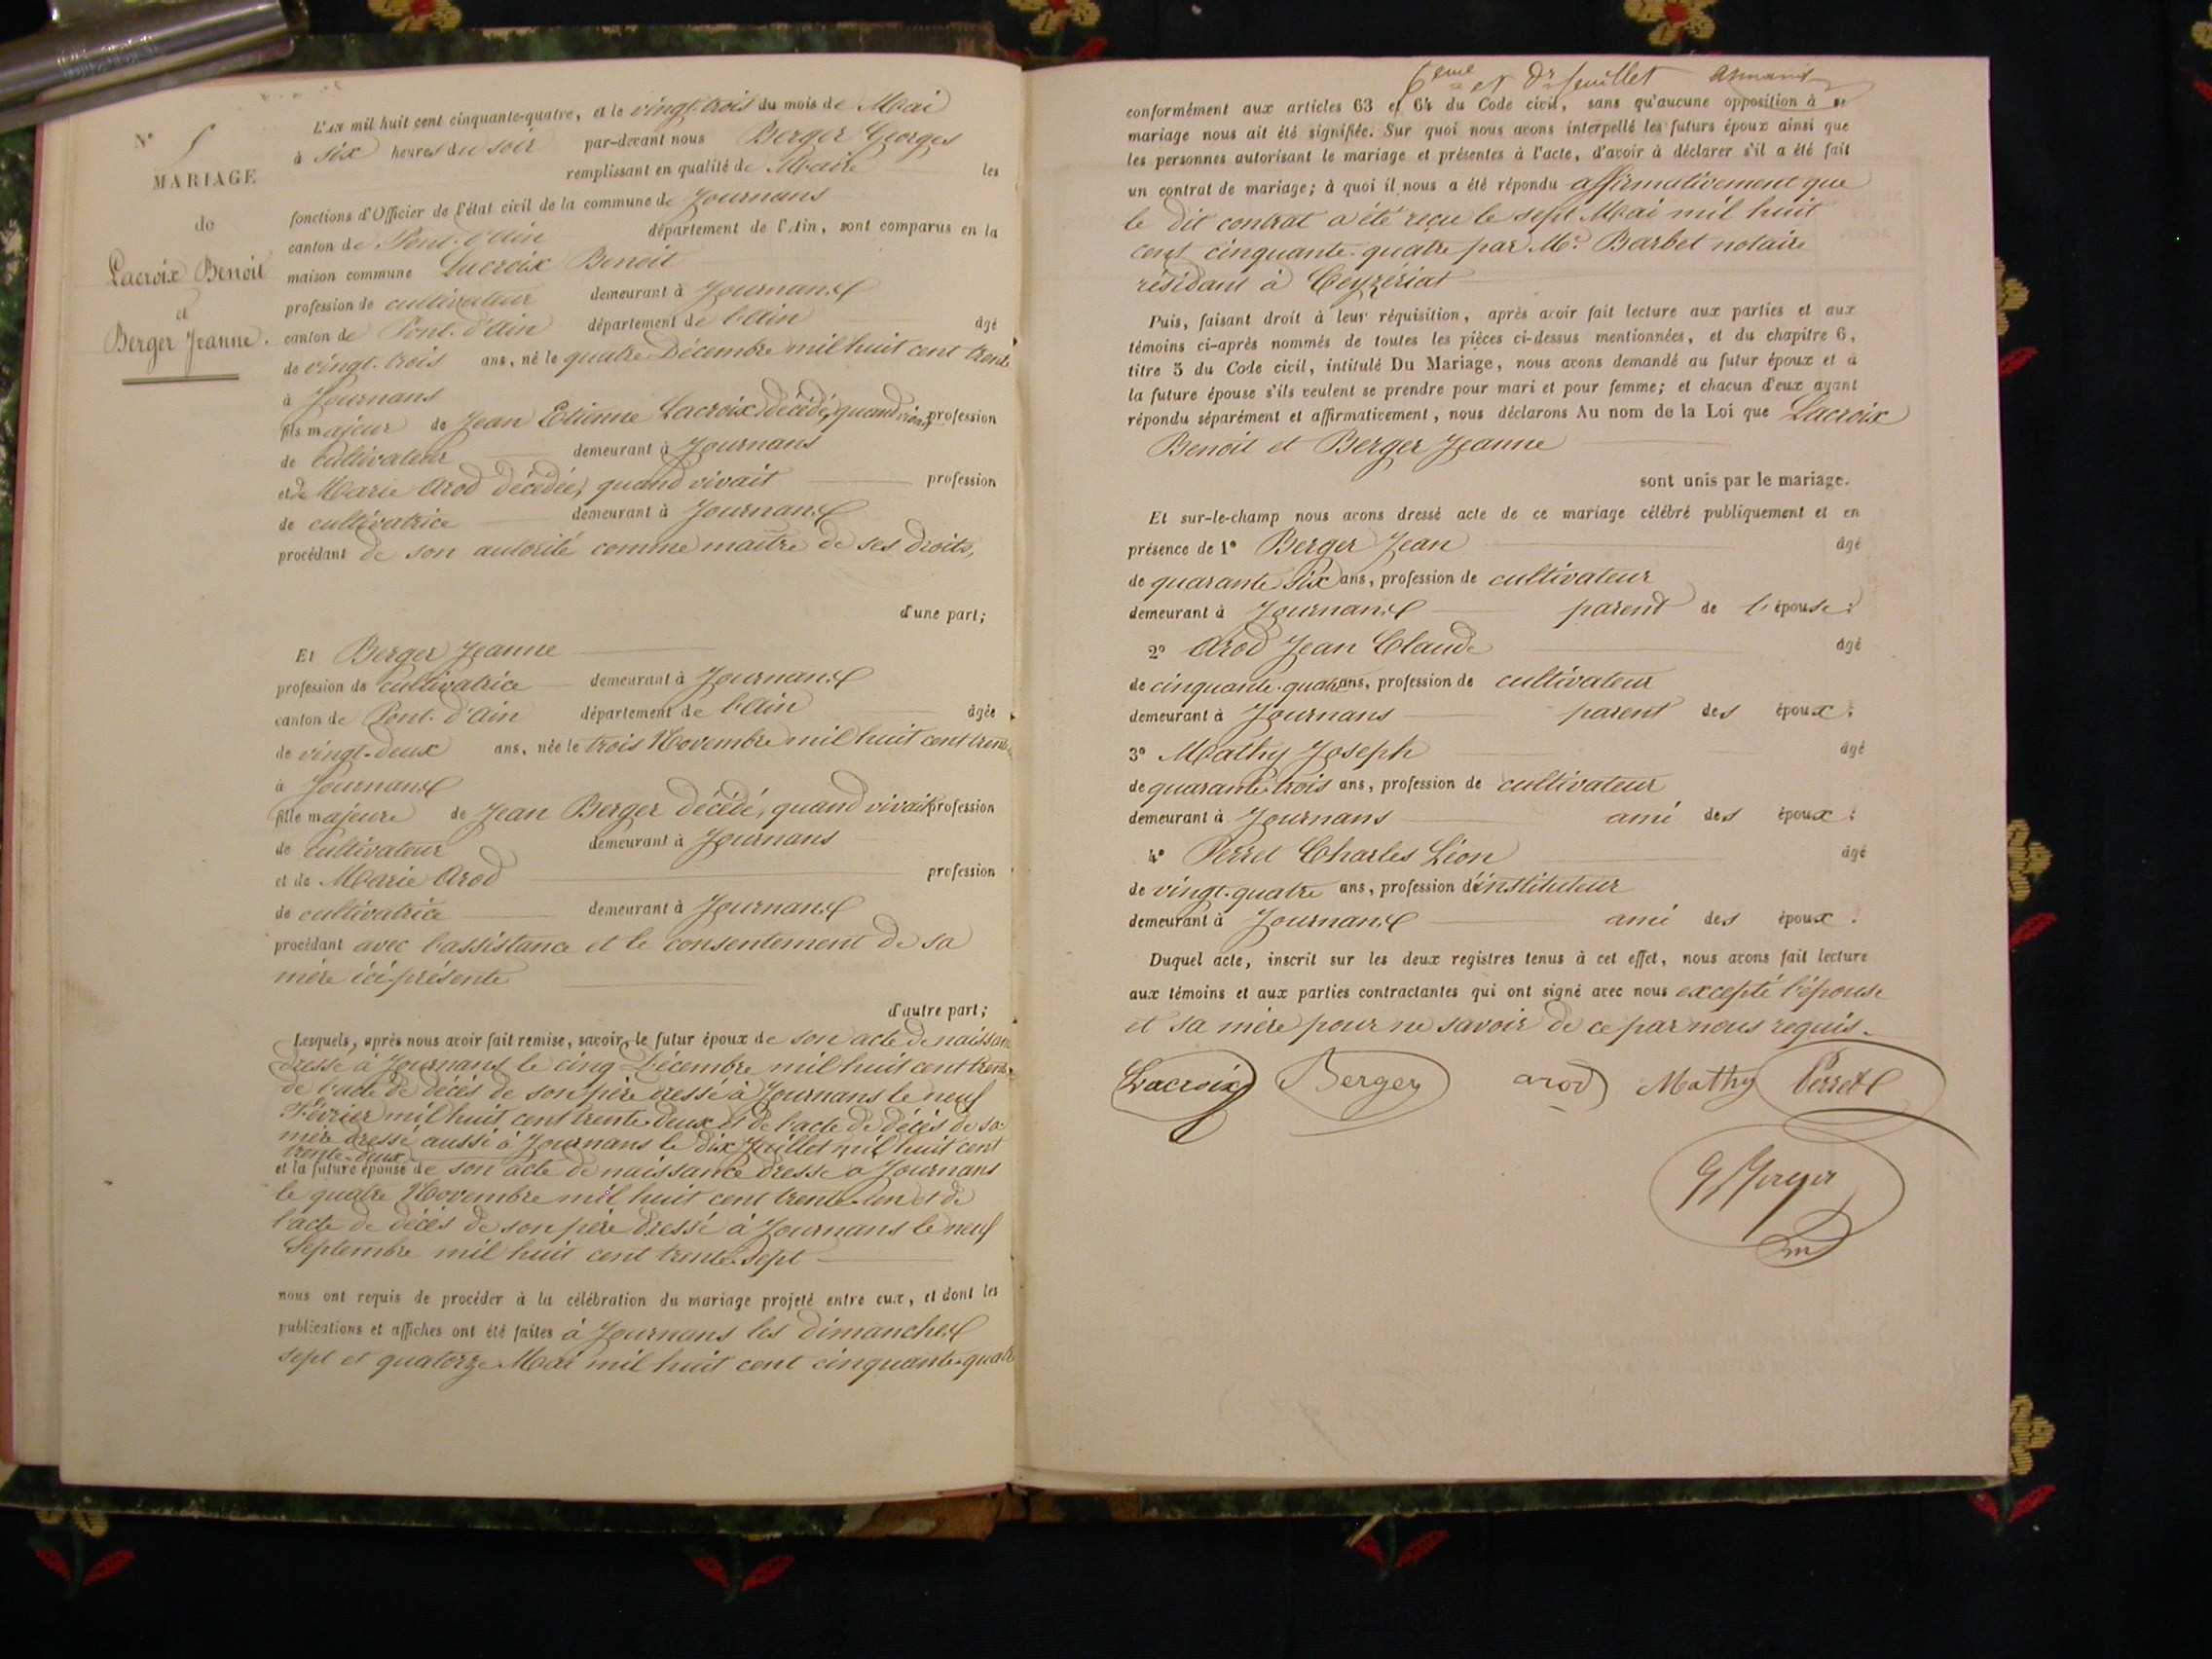 N° 5
MARIAGE
de
Lacroix Benoit
et
Berger Jeanne.
L'an mil huit cent cinquante-quatre, et le vingt-trois du mois de Mai
à six heures du soir par-devant nous Berger Georges
remplissant en qualité de Maire les
fonctions d'Officier de l'état civil de la commune de Journans
canton de Pont-d'Ain département de l'Ain, sont comparus en la
maison commune Lacroix Benoit
profession de cultivateur demeurant à Journans
canton de Pont-d'Ain département de l'Ain âgé
de vingt-trois ans, né le quatre Décembre mil huit cent trente
à Journans
fils majeur de Jean Etienne Lacroix décédé, quand vivait profession
de cultivateur demeurant à Journans
et de Marie Arod décédée, quand vivait profession
de cultivatrice demeurant à Journans
procédant de son autorité comme maître de ses droits,
d'une part;
Et Berger Jeanne
profession de cultivatrice demeurant à Journans
canton de Pont-d'Ain département de l'Ain âgée
de vingt-deux ans, née le trois Novembre mil huit cent trente
à Journans
fille majeure de Jean Berger décédé, quand vivait profession
de cultivateur demeurant à Journans
et de Marie Arod profession
de cultivatrice demeurant à Journans
procédant avec l'assistance et le consentement de sa
mère ici présente
d'autre part;
Lesquels, après nous avoir fait remise, savoir, le futur époux de son acte de naissance
dressé à Journans le cinq Décembre mil huit cent trente,
de l'acte de décès de son père dressé à Journans le neuf
Février mil huit cent trente-deux et de l'acte de décès de sa
mère dressé aussi à Journans le dix Juillet mil huit cent
trente-deux
et la future épouse de son acte de naissance dressé à Journans
le quatre Novembre mil huit cent trente-un et de
l'acte de décès de son père dressé à Journans le neuf
Septembre mil huit cent trente-sept
nous ont requis de procéder à la célébration du mariage projeté entre eux, et dont les
publications et affiches ont été faites à Journans les dimanches
sept et quatorze Mai mil huit cent cinquante-quatre
6eme et dr feuillet
conformément aux articles 63 et 64 du Code civil, sans qu'aucune opposition à ce
mariage nous ait été signifiée. Sur quoi nous avons interpellé les futurs époux ainsi que
les personnes autorisant le mariage et présentes à l'acte, d'avoir à déclarer s'il a été fait
un contrat de mariage; à quoi il nous a été répondu affirmativement que
le dit contrat a été reçu le sept Mai mil huit
cent cinquante-quatre par Me. Barbet notaire
résidant à Ceyzériat
Puis, faisant droit à leur réquisition, après avoir fait lecture aux parties et aux
témoins ci-après nommés de toutes les pièces ci-dessus mentionnées, et du chapitre 6,
titre 5 du Code civil, intitulé Du Mariage, nous avons demandé au futur époux et à
la future épouse s'ils veulent se prendre pour mari et pour femme; et chacun d'eux ayant
répondu séparément et affirmativement, nous déclarons Au nom de la Loi que Lacroix
Benoit et Berger Jeanne
sont unis par le mariage.
Et sur-le-champ nous avons dressé acte de ce mariage célébré publiquement et en
présence de 1° Berger Jean âgé
de quarante six ans, profession de cultivateur
demeurant à Journans parent de l'épouse;
2° Arod Jean Claude âgé
de cinquante-quatre ans, profession de cultivateur
demeurant à Journans parent des époux;
3° Mathy Joseph âgé
de quarante-trois ans, profession de cultivateur
demeurant à Journans ami des époux;
4° Perret Charles Léon âgé
de vingt-quatre ans, profession d'instituteur
demeurant à Journans ami des époux.
Duquel acte, inscrit sur les deux registres tenus à cet effet, nous avons fait lecture
aux témoins et aux parties contractantes qui ont signé avec nous excepté l'épouse
et sa mère pour ne savoir de ce par nous requis.
Lacroix Berger arod Mathy Perret
G Berger
m